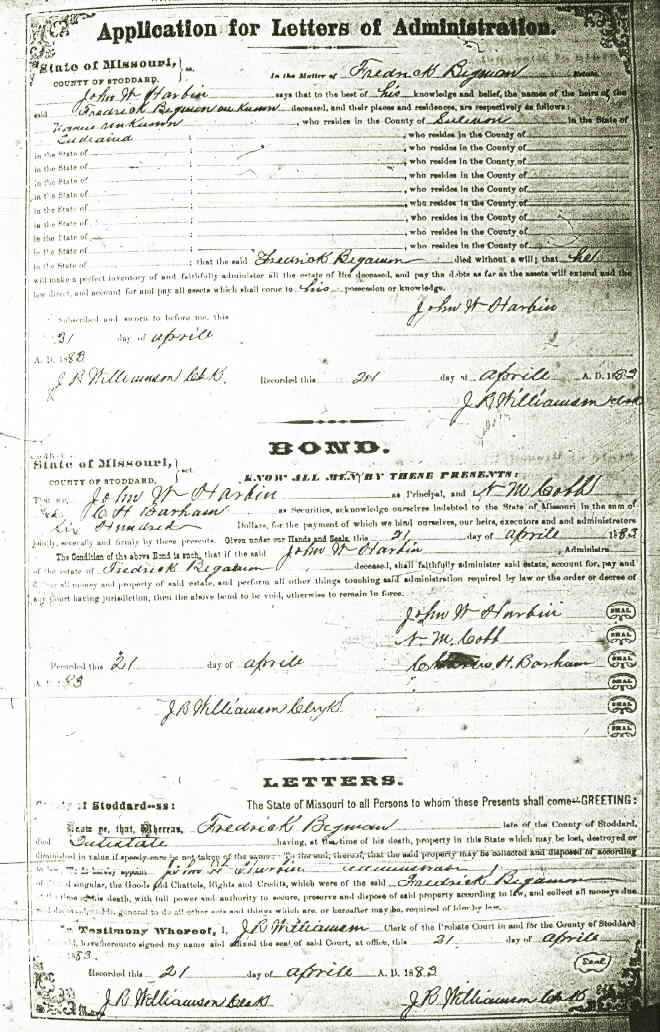 Application for Letters of Administration.
State of Missouri, } ss.
COUNTY OF STODDARD,
In the Matter of Fredrick Bigman Estate.
John W Harbin says that to the best of his knowledge and belief, the names of the heirs of the
said Fredrick Begamon un Known deceased, and their places and residences, are respectively as follows:
unKnown, who resides in the County of in the State of
Indiana ; , who resides in the County of
in the State of ; , who resides in the County of
in the State of ; , who resides in the County of
in the State of ; , who resides in the County of
in the State of ; , who resides in the County of
in the State of ; , who resides in the County of
in the State of ; , who resides in the County of
in the State of ; , who resides in the County of
in the State of ; that the said Fredrick Begamon died without a will; that he
will make a perfect inventory of and faithfully administer all the estate of the deceased, and pay the debts as far as the assets will extend and the
law direct, and account for and pay all assets which shall come to his possession or knowledge.
John W Harbin
Subscribed and sworn to before me, this
21 day of Aprile
A. D. 1883
J B Williamson Clk. Recorded this 21 day of Aprile A. D. 1883
J B Williamson Clerk
BOND.
State of Missouri, } sct.
COUNTY OF STODDARD,
KNOW ALL MEN BY THESE PRESENTS:
That we, John W Harbin as Principal, and N M Cobb
C H Barham as Securities, acknowledge ourselves indebted to the State of Missouri in the sum of
Six Hundred Dollars, for the payment of which we bind ourselves, our heirs, executors and and administrators
jointly, severally and firmly by these presents. Given under our Hands and Seals, this 21 day of Aprile 1883
The Condition of the above Bond is such, that if the said John W Harbin, Administra
of the estate of Fredrick Begamon deceased, shall faithfully administer said estate, account for, pay and
deliver all money and property of said estate, and perform all other things touching said administration required by law or the order or decree of
any Court having jurisdiction, then the above bond to be void, otherwise to remain in force:
John W Harbin SEAL
N M Cobb SEAL
Recorded this 21 day of Aprile Charles H. Barham SEAL
A. D. 83 SEAL
J B Williamson Clerk SEAL
SEAL
LETTERS.
County of Stoddard--ss: The State of Missouri to all Persons to whom these Presents shall come--GREETING:
Know ye, that, Whereas, Fredrick Bigman late of the County of Stoddard,
died Intistate having, at the time of his death, property in this State which may be lost, destroyed or
diminished in value if speedy care be not taken of the same: To the end, thereof, that the said property may be collected and disposed of according
to law, We do hereby appoint John W Harbin administrator
of all and singular, the Goods and Chattels, Rights and Credits, which were of the said Fredrick Begamon
at the time of his death, with full power and authority to secure, preserve and dispose of said property according to law, and collect all moneys due
said deceased, and in general to do all other acts and things which are, or hereafter may be, required of him by law.
In Testimony Whereof, I, J B Williamson Clerk of the Probate Court in and for the County of Stoddard
said, have hereunto signed my name and affixed the seal of said Court, at office, this 21 day of Aprile
1883.
Seal
Recorded this 21 day of Aprile A. D. 1883
J B Williamson Clerk J B Williamson Clerk